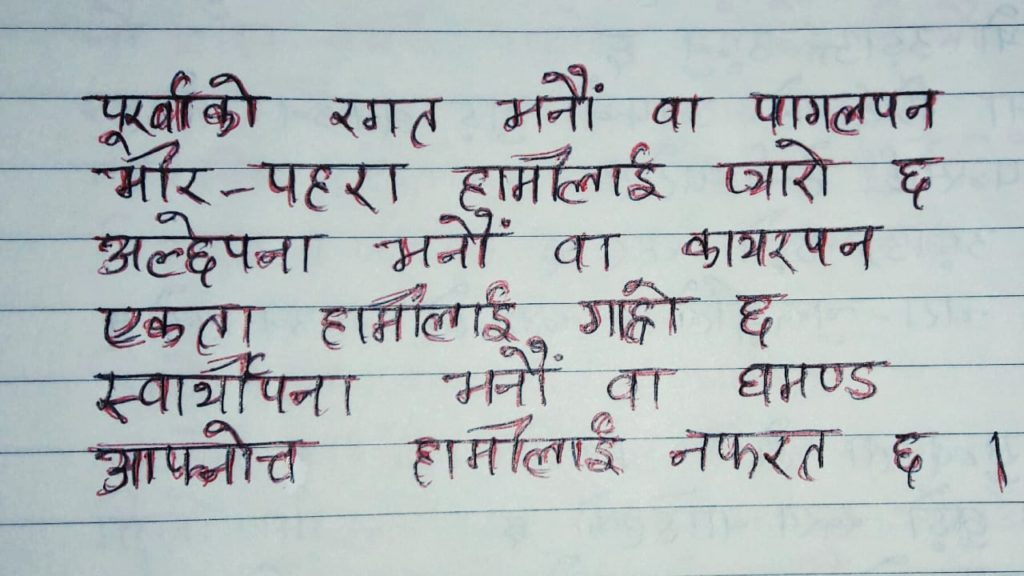 पूर्खाको रगत मनौं वा पागलपन
मीर-पहरा हामीलाई प्यारो छ
अल्छेपना मनौं वा कायरपन
एकता हामीलाई गाह्रो छ
स्वार्थीपना मनौं वा घमण्ड
आफ्नोच हामीलाई नफरत छ ।